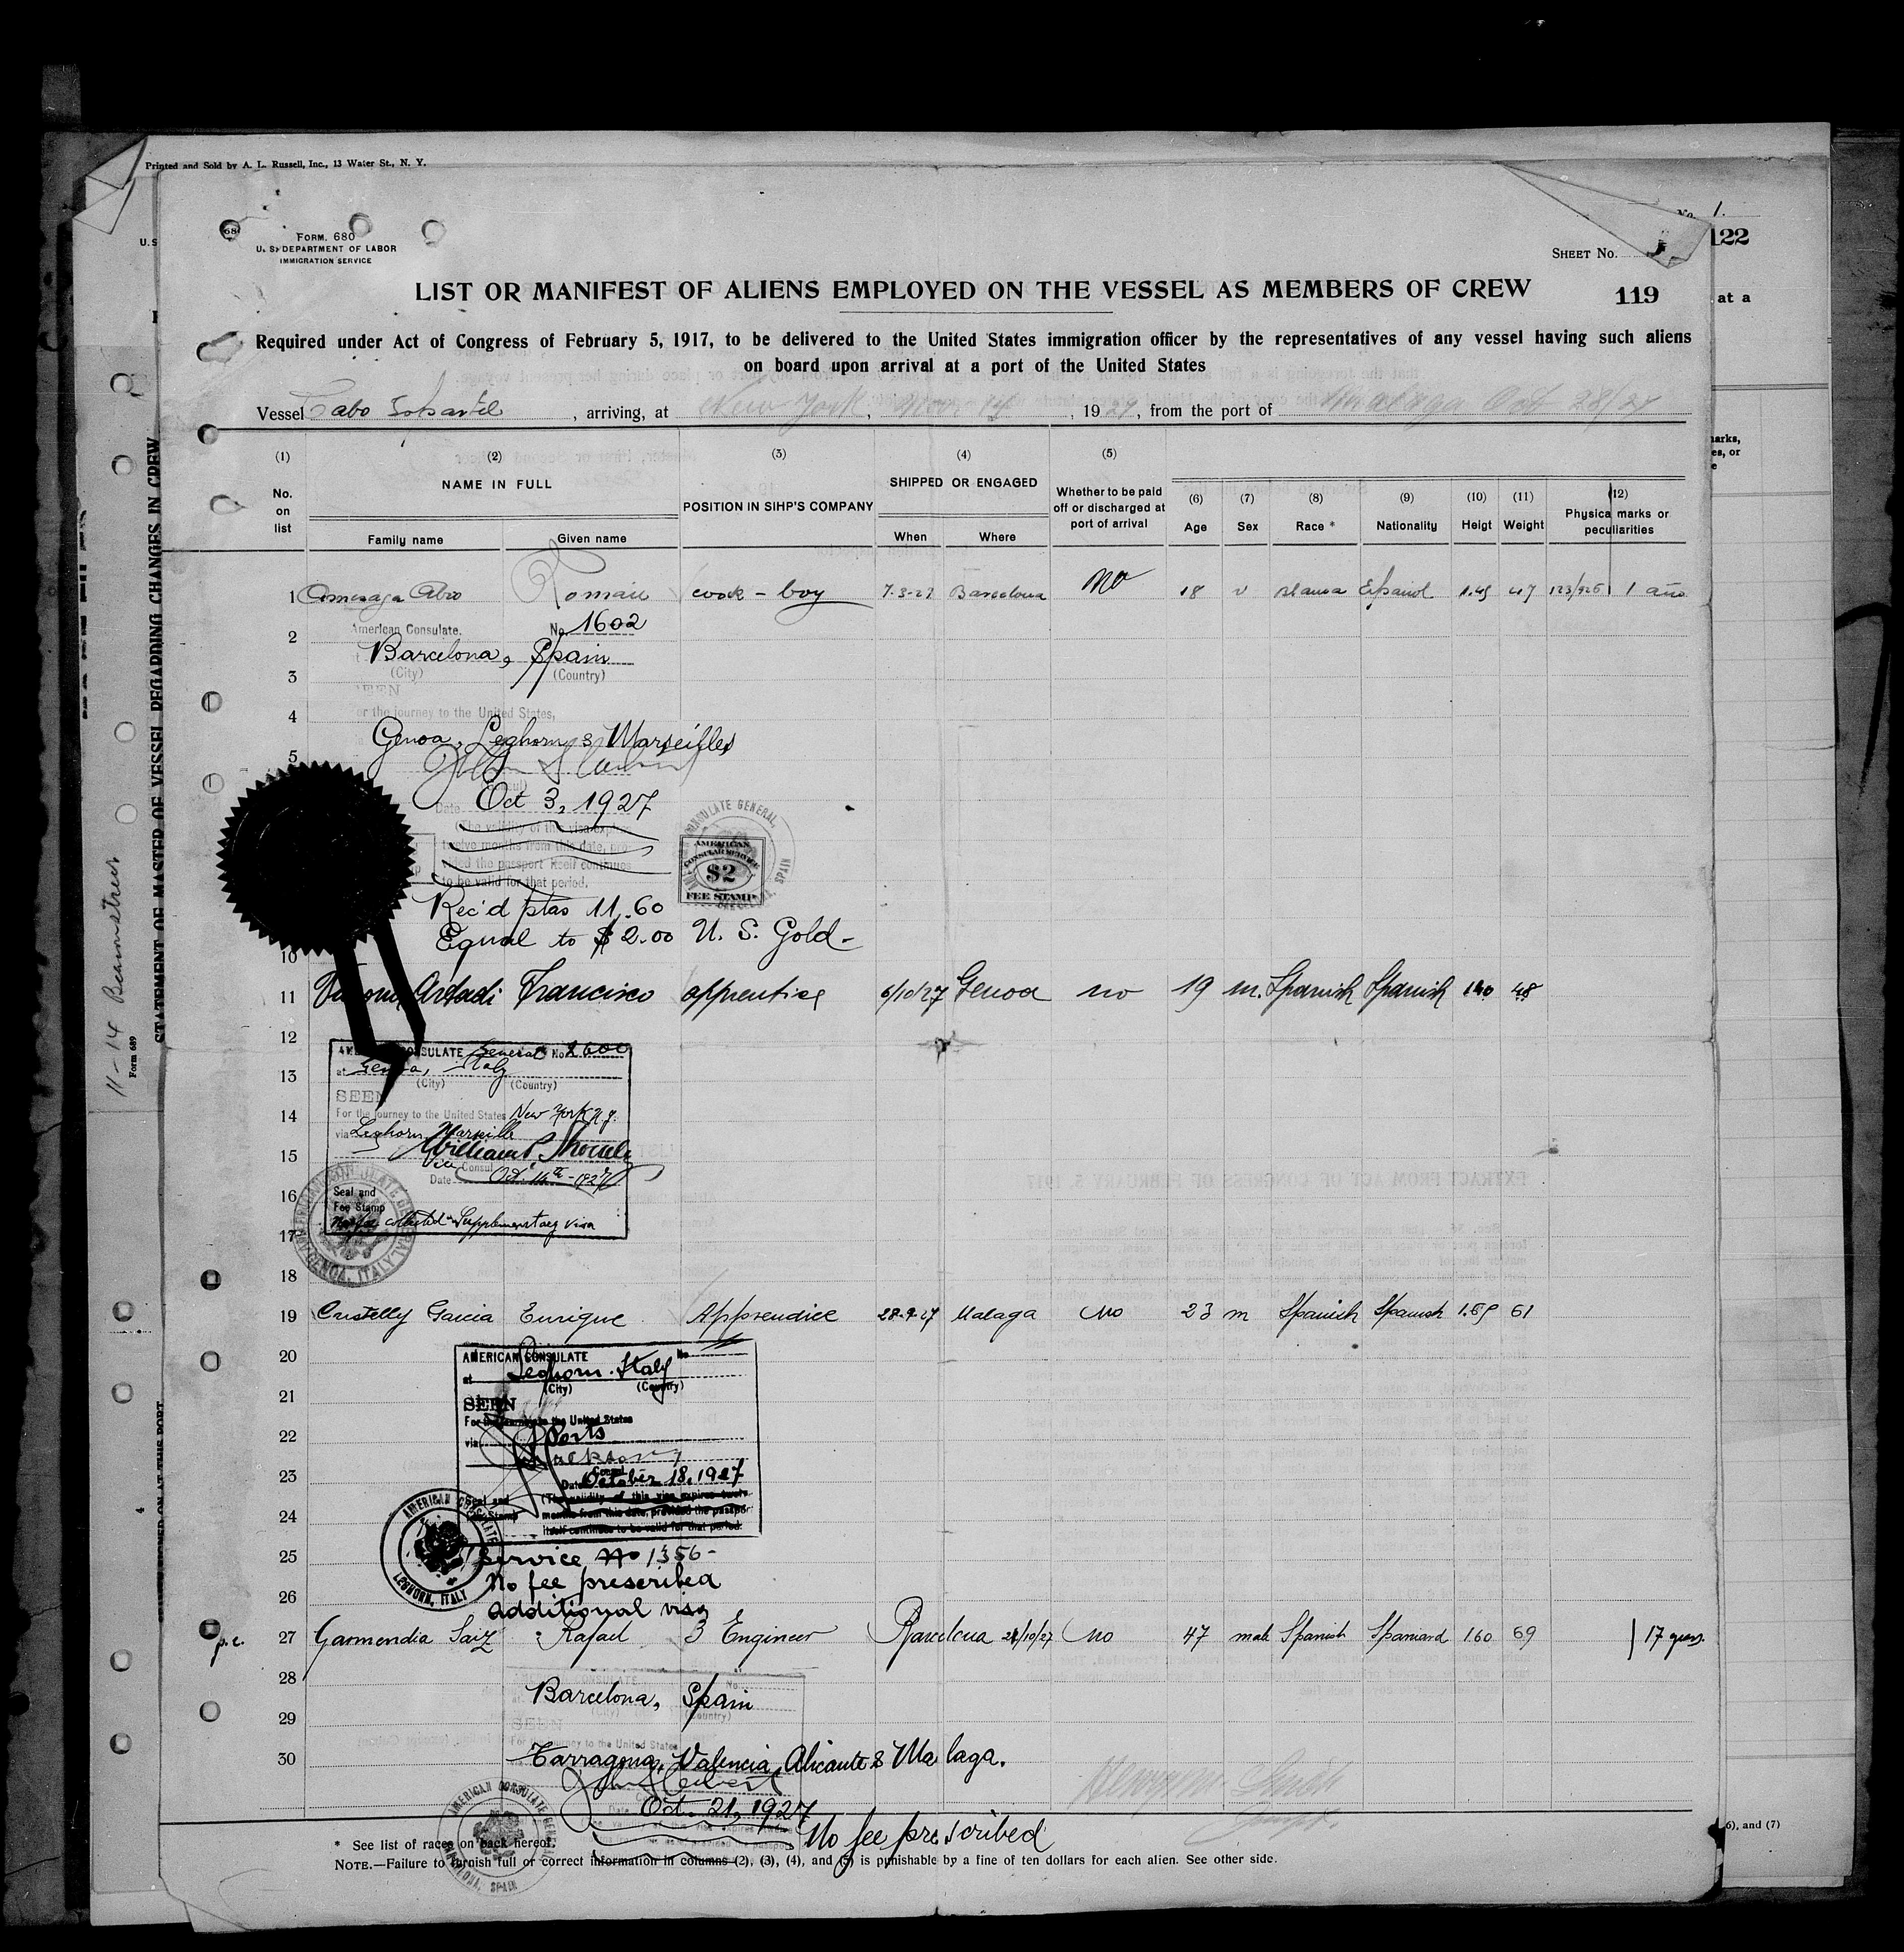 Printed and Sold by A. L. Russell, Inc., 13 Water St., N. Y.
No. 1.
122
FORM. 680
U. S. DEPARTMENT OF LABOR
IMMIGRATION SERVICE
SHEET No.
LIST OR MANIFEST OF ALIENS EMPLOYED ON THE VESSEL AS MEMBERS OF CREW
119
at a
Required under Act of Congress of February 5, 1917, to be delivered to the United States immigration officer by the representatives of any vessel having such aliens
on board upon arrival at a port of the United States
Vessel Cabo Espartel, arriving, at New York, Nov 14, 1927, from the port of Malaga Oct 28/27
(1) (2) (3) (4) (5)
No. on list
NAME IN FULL
Family name Given name
POSITION IN SIHP'S COMPANY
SHIPPED OR ENGAGED
When Where
Whether to be paid off or discharged at port of arrival
(6) Age
(7) Sex
(8) Race *
(9) Nationality
(10) Heigt
(11) Weight
(12) Physica marks or peculiarities
1 Abio Roman cook - boy 7-3-27 Barcelona No 18 v Blanca Español 1.45 47 123/926 1 año
2 American Consulate. No. 1602
Barcelona, Spain
3 (City) (Country)
SEEN
4 or the journey to the United States,
Genoa, Leghorn & Marseilles
5
Date Oct 3, 1927
(The validity of this visa expires
twelve months from this date, pro-
vided the passport itself continues
to be valid for that period.
AMERICAN CONSULAR SERVICE
$2
FEE STAMP
CONSULATE GENERAL, SPAIN
Rec'd ptas 11.60
Equal to $2.00 U. S. Gold-
10
11 Artadi Francisco apprentice 6/10/27 Genoa no 19 m. Spanish Spanish 1.60 48
12 CONSULATE General No 2600
at Genoa, Italy
13 (City) (Country)
SEEN
14 For the journey to the United States New York N.Y.
via Leghorn, Marseille
15 William
Vice Consul
Date Oct. 14th - 1927
16 Seal and
Fee Stamp
No fee collected - Supplementary visa
17
AMERICAN CONSULATE GENERAL GENOA, ITALY
18
19 Castelly Garcia Enrique Apprendice 28-9-27 Malaga No 23 m Spanish Spanish 1.69 61
20 AMERICAN CONSULATE No
at Leghorn. Italy
(City) (Country)
21 SEEN
For the journey to the United States
22 via Ports
23 Date October 18, 1927
Seal and (The validity of this visa expires twelve
24 Fee Stamp months from this date, provided the passport
itself continues to be valid for that period.
AMERICAN CONSULATE LEGHORN, ITALY
25 Service No 1356-
No fee prescribed
26 additional visa
p.c. 27 Garmendia Saiz Rafael 3 Engineer Barcelona 21/10/27 No 47 male Spanish Spaniard 1.60 69 17 years.
28 CONSULATE No.
Barcelona, Spain
(City) (Country)
29 SEEN
For the journey to the United States
30 Tarragona, Valencia, Alicante & Malaga.
Date Oct. 21, 1927
No fee prescribed
AMERICAN CONSULATE GENERAL BARCELONA, SPAIN
* See list of races on back hereof.
NOTE.—Failure to furnish full or correct information in columns (2), (3), (4), and (5) is punishable by a fine of ten dollars for each alien. See other side.
6), and (7)
STATEMENT OF MASTER OF VESSEL REGARDING CHANGES IN CREW
11-14
Form 689